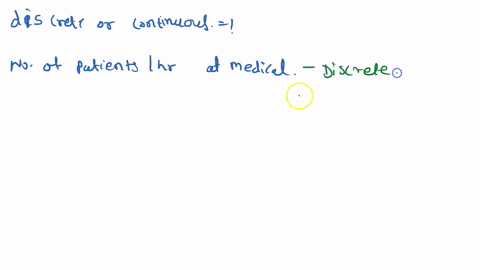 discrete or continuous. =!
No. of patients / hr at medical. - Discrete.